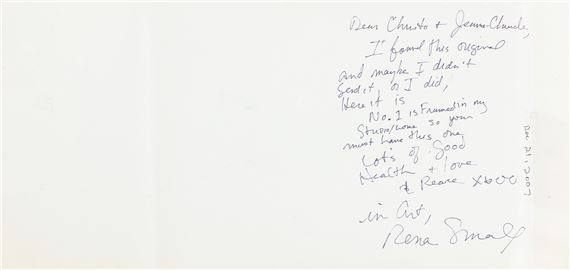 Dear Christo + Jeanne-Claude,
I found this original
and maybe I didn't
send it, or I did,
Here it is
No. 1 is Framed in my
Studio/home so you
must have this one
Lots of Good
Health + love
& Peace xoxo
in Art,
Rena Small
21 · 2007